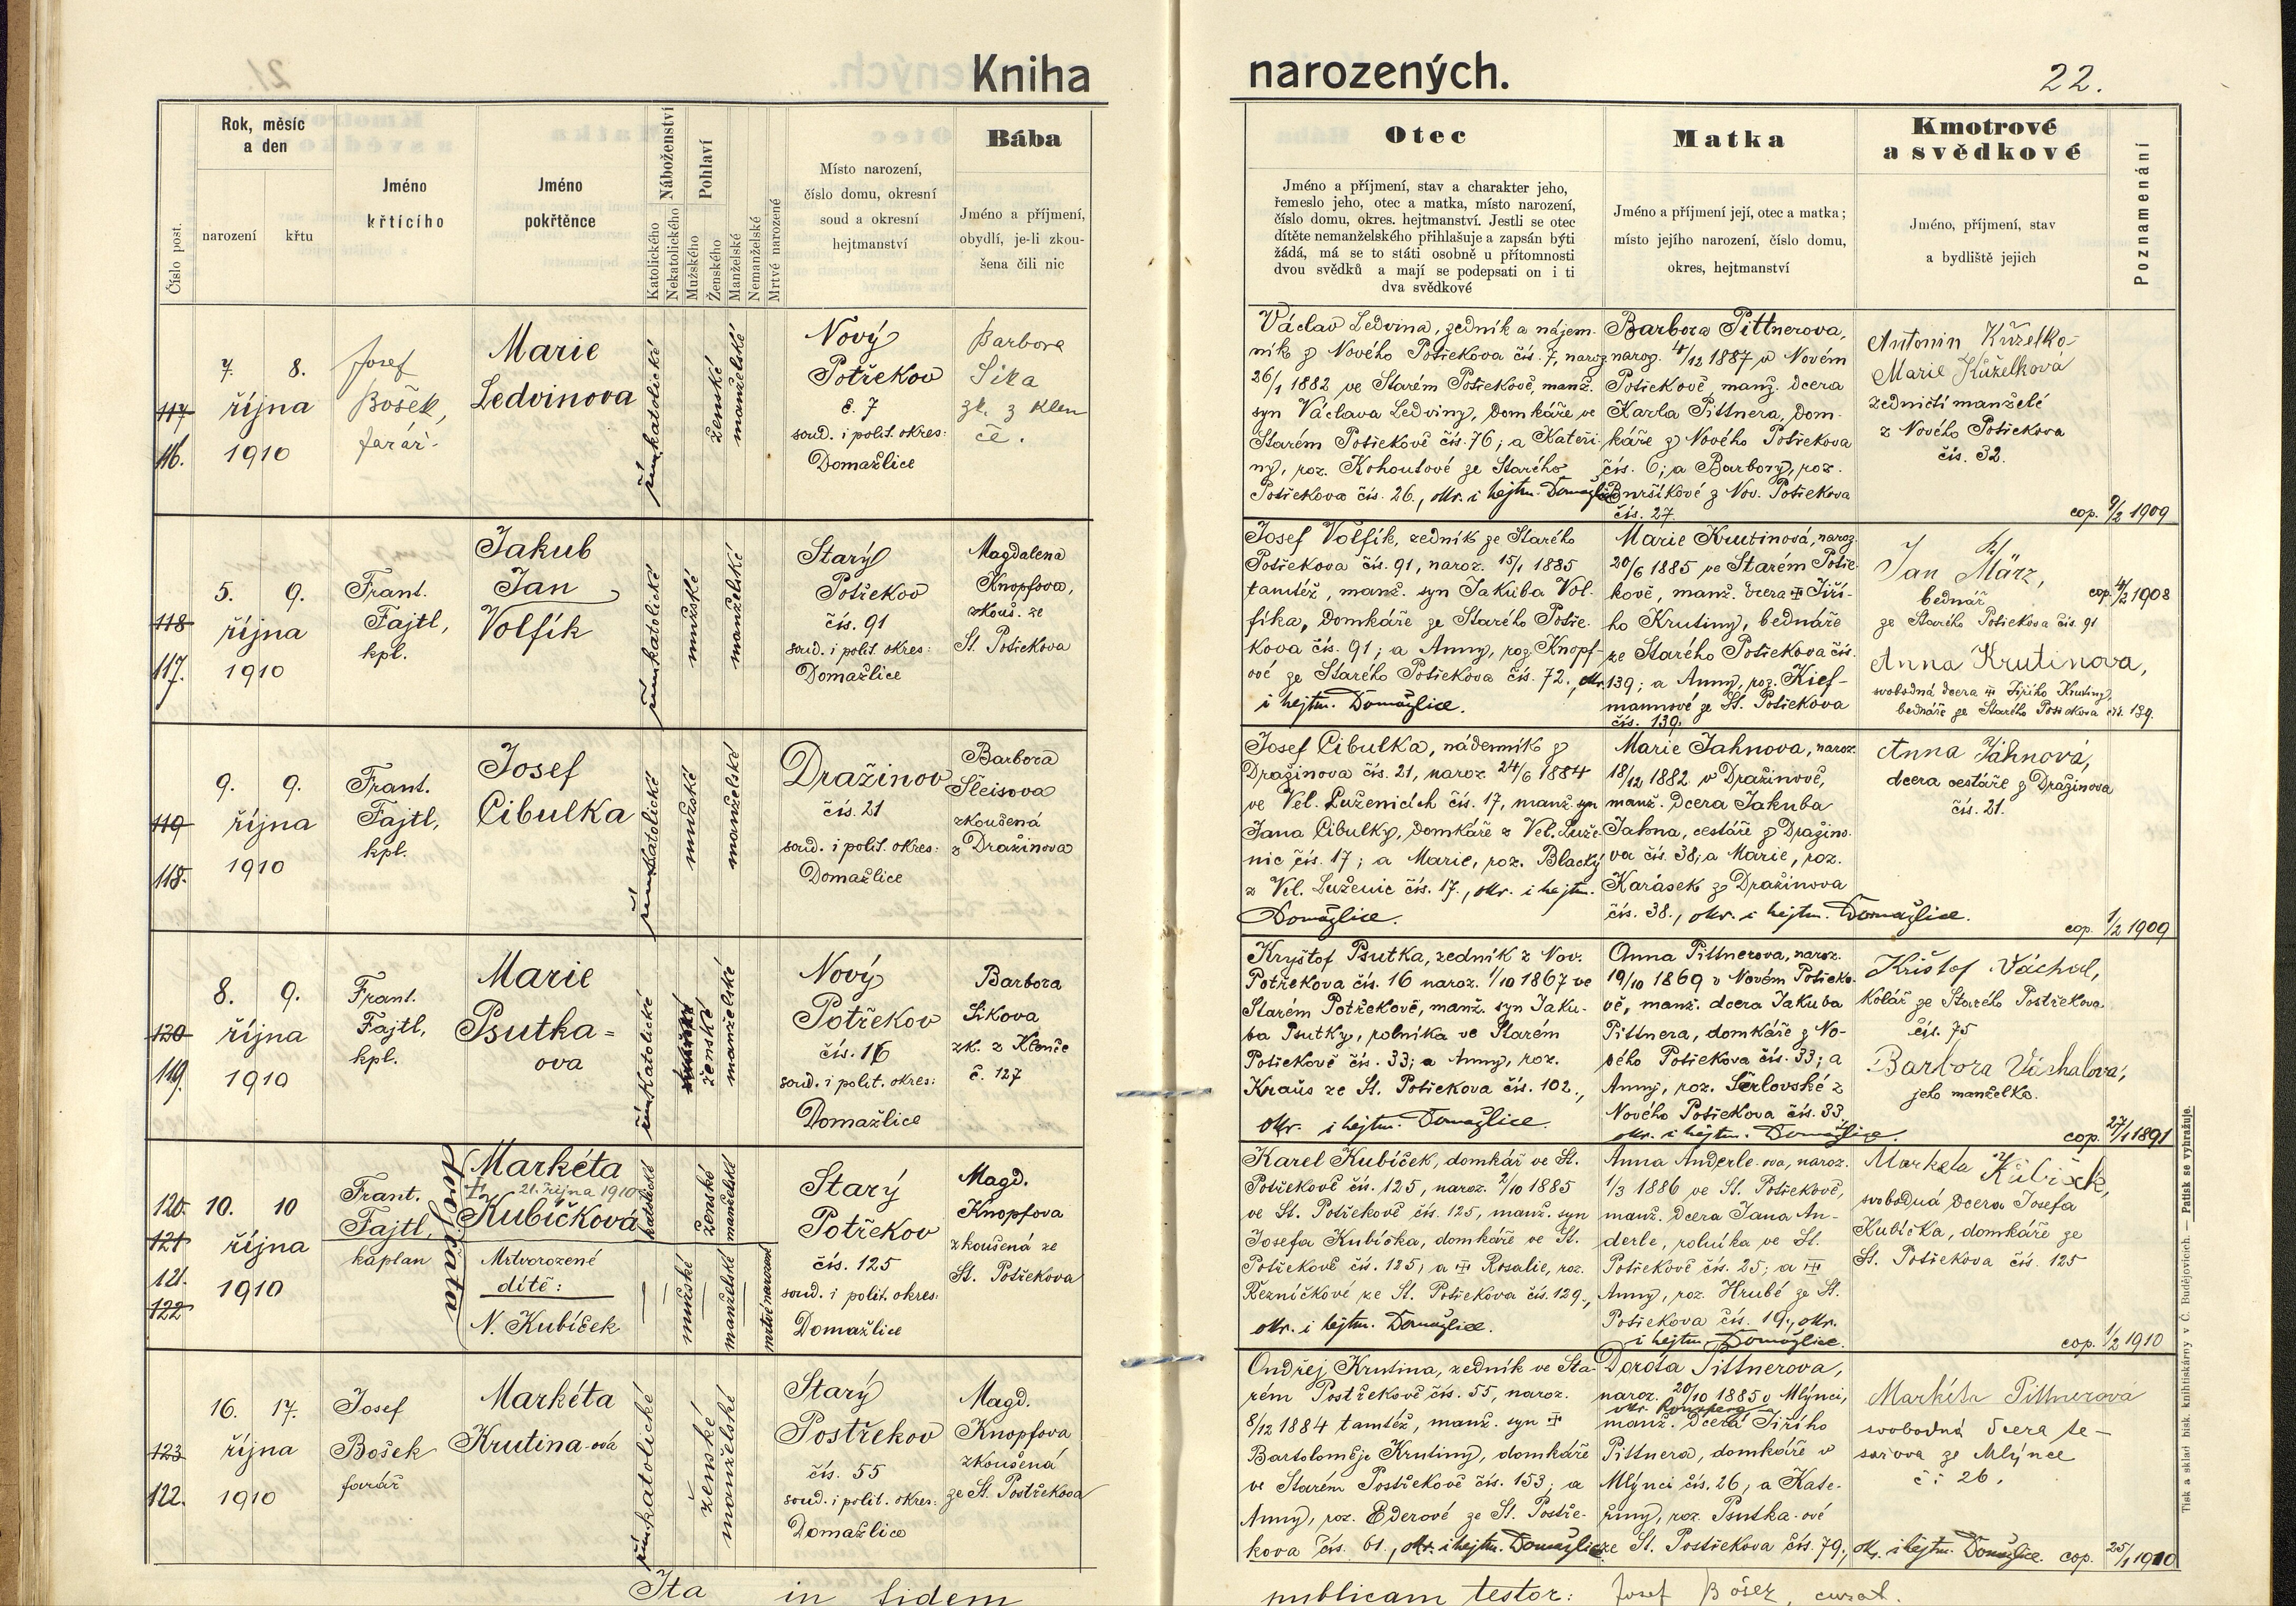 Kniha narozených.
22.
Číslo post.
Rok, měsíc
a den
narození
křtu
Jméno
křtícího
Jméno
pokřtěnce
Náboženství
Katolického
Nekatolického
Pohlaví
Mužského
Ženského
Manželské
Nemanželské
Mrtvě narozené
Místo narození,
číslo domu, okresní
soud a okresní
hejtmanství
Bába
Jméno a příjmení,
obydlí, je-li zkou-
šena čili nic
Otec
Jméno a příjmení, stav a charakter jeho,
řemeslo jeho, otec a matka, místo narození,
číslo domu, okres. hejtmanství. Jestli se otec
dítěte nemanželského přihlašuje a zapsán býti
žádá, má se to státi osobně u přítomnosti
dvou svědků a mají se podepsati on i ti
dva svědkové
Matka
Jméno a příjmení její, otec a matka;
místo jejího narození, číslo domu,
okres, hejtmanství
Kmotrové
a svědkové
Jméno, příjmení, stav
a bydliště jejich
Poznamenání
117
116.
7. 8.
října
1910
Josef
Bošek,
farář
Marie
Ledvinova
řím. katolické
ženské
manželské
Nový
Potřekov
č. 7
soud. i polit. okres:
Domažlice
Barbora
Sika
zk. z Klen
če.
Václav Ledvina, zedník a nájem-
ník z Nového Potřekova čís. 7, naroz
26/1 1882 ve Starém Potřekově, manž.
syn Václava Ledviny, domkáře ve
Starém Potřekově čís. 76; a Kateři-
ny, roz. Kohoutové ze Starého
Potřekova čís. 26., okr. i hejtm. Domažlice
Barbora Pittnerova,
naroz. 4/12 1887 v Novém
Potřekově, manž. dcera
Karla Pittnera, dom-
káře z Nového Potřekova
čís. 6; a Barbory, roz.
Buršíkové z Nov. Potřekova
čís. 27.
Antonin Kuželka
Marie Kuželková
zedničtí manželé
z Nového Potřekova
čís. 32.
cop. 9/2 1909
118
117.
5. 9.
října
1910
Frant.
Fajtl,
kpl.
Jakub
Jan
Volfík
řím. katolické
mužské
manželské
Starý
Potřekov
čís. 91
soud. i polit. okres:
Domažlice
Magdalena
Knopfova,
zkouš. ze
St. Potřekova
Josef Volfík, zedník ze Starého
Potřekova čís. 91, naroz. 15/1 1885
tamtéž, manž. syn Jakuba Vol-
fíka, domkáře ze Starého Potře-
kova čís. 91; a Anny, roz. Knopf-
ové ze Starého Potřekova čís. 72., okr.
i hejtm. Domažlice.
Marie Krutinová, naroz.
20/6 1885 ve Starém Potře-
kově, manž. dcera Jiří-
ho Krutiny, bednáře
ze Starého Potřekova čís.
139; a Anny, roz. Kief-
mannové ze St. Potřekova
čís. 139.
Jan März,
bednář
ze Starého Potřekova čís. 91
Anna Krutinova,
svobodná dcera Jiřího Krutiny,
bednáře ze Starého Potřekova čís. 139.
cop. 4/2 1908
119
118.
9. 9.
října
1910
Frant.
Fajtl,
kpl.
Josef
Cibulka
řím. katolické
mužské
manželské
Dražinov
čís. 21
soud. i polit. okres:
Domažlice
Barbora
Šteisova
zkoušená
z Dražinova
Josef Cibulka, nádenník z
Dražinova čís. 21, naroz 24/6 1884
ve Vel. Luženicích čís. 17, manž. syn
Jana Cibulky, domkáře z Vel. Luže-
nic čís. 17; a Marie, roz. Blacký
z Vel. Luženic čís. 17., okr. i hejtm.
Domažlice.
Marie Jahnova, naroz.
18/12 1882 v Dražinově,
manž. dcera Jakuba
Jahna, cestáře z Dražino-
va čís. 38; a Marie, roz.
Karásek z Dražinova
čís. 38., okr. i hejtm. Domažlice.
Anna Jahnová,
dcera cestáře z Dražinova
čís. 21.
cop. 1/2 1909
120
119.
8. 9.
října
1910
Frant.
Fajtl,
kpl.
Marie
Psutka=
ova
řím. katolické
mužské
ženské
manželské
Nový
Potřekov
čís. 16
soud. i polit. okres:
Domažlice
Barbora
Sikova
zk. z Klenče
č. 127
Kryštof Psutka, zedník z Nov.
Potřekova čís. 16 naroz. 1/10 1867 ve
Starém Potřekově, manž. syn Jaku-
ba Psutky, rolníka ve Starém
Potřekově čís. 33; a Anny, roz.
Kraus ze St. Potřekova čís. 102.,
okr. i hejtm. Domažlice.
Anna Pittnerova, naroz.
19/10 1869 v Novém Potřeko-
vě, manž. dcera Jakuba
Pittnera, domkáře z No-
vého Potřekova čís. 33; a
Anny, roz. Serlovské z
Nového Potřekova čís. 33
okr. i hejtm. Domažlice.
Krištof Váchal,
Kolář ze Starého Postřekova
čís. 75
Barbora Váchalová,
jeho manželka.
cop. 27/1 1891
120.
121
121.
122
10. 10
října
1910
Frant.
Fajtl,
kaplan
dvojčata
Markéta
† 21. října 1910
Kubíčková
Mrtvorozené
dítě:
N. Kubíček
katolické
ženské
manželské
mužské
manželské
mrtvě narozené
Starý
Potřekov
čís. 125
soud. i polit. okres:
Domažlice
Magd.
Knopfova
zkoušená ze
St. Potřekova
Karel Kubíček, domkář ve St.
Potřekově čís. 125, naroz. 2/10 1885
ve St. Potřekově čís. 125, manž. syn
Josefa Kubíčka, domkáře ve St.
Potřekově čís. 125; a Rosalie, roz.
Řezníčkové ze St. Potřekova čís. 129.,
okr. i hejtm. Domažlice.
Anna Anderle-ova, naroz.
1/3 1886 ve St. Potřekově,
manž. dcera Jana An-
derle, rolníka ve St.
Potřekově čís. 25; a
Anny, roz. Hrubé ze St.
Potřekova čís. 19., okr.
i hejtm. Domažlice.
Marketa Kubíček,
svobodná dcera Josefa
Kubíčka, domkáře ze
St. Potřekova čís. 125
cop. 1/2 1910
123
122.
16. 17.
října
1910
Josef
Bošek
farář
Markéta
Krutina-ová
řím. katolické
ženské
manželské
Starý
Postřekov
čís. 55
soud. i polit. okres:
Domažlice
Magd.
Knopfova
zkoušená
ze St. Postřekova
Ondřej Krutina, zedník ve Sta-
rém Postřekově čís. 55, naroz.
8/12 1884 tamtéž, manž. syn
Bartoloměje Krutiny, domkáře
ve Starém Postřekově čís. 153; a
Anny, roz. Ederové ze St. Postře-
kova čís. 61., okr. i hejtm. Domažlice
Dorota Pittnerova,
naroz. 20/10 1885 v Mlýnci,
okr. Ronsperg
manž. dcera Jiřího
Pittnera, domkáře v
Mlýnci čís. 26, a Kate-
řiny, roz. Psutka-ové
ze St. Postřekova čís. 79., okr. i hejtm. Domažlice.
Markéta Pittnerová
svobodná dcera te-
sařova ze Mlýnce
č: 26.
cop. 25/1 1910
Ita in fidem publicam testor: Josef Bošek, curat.
Tisk a sklad bisk. knihtiskárny v Č. Budějovicích. — Patisk se vyhražuje.